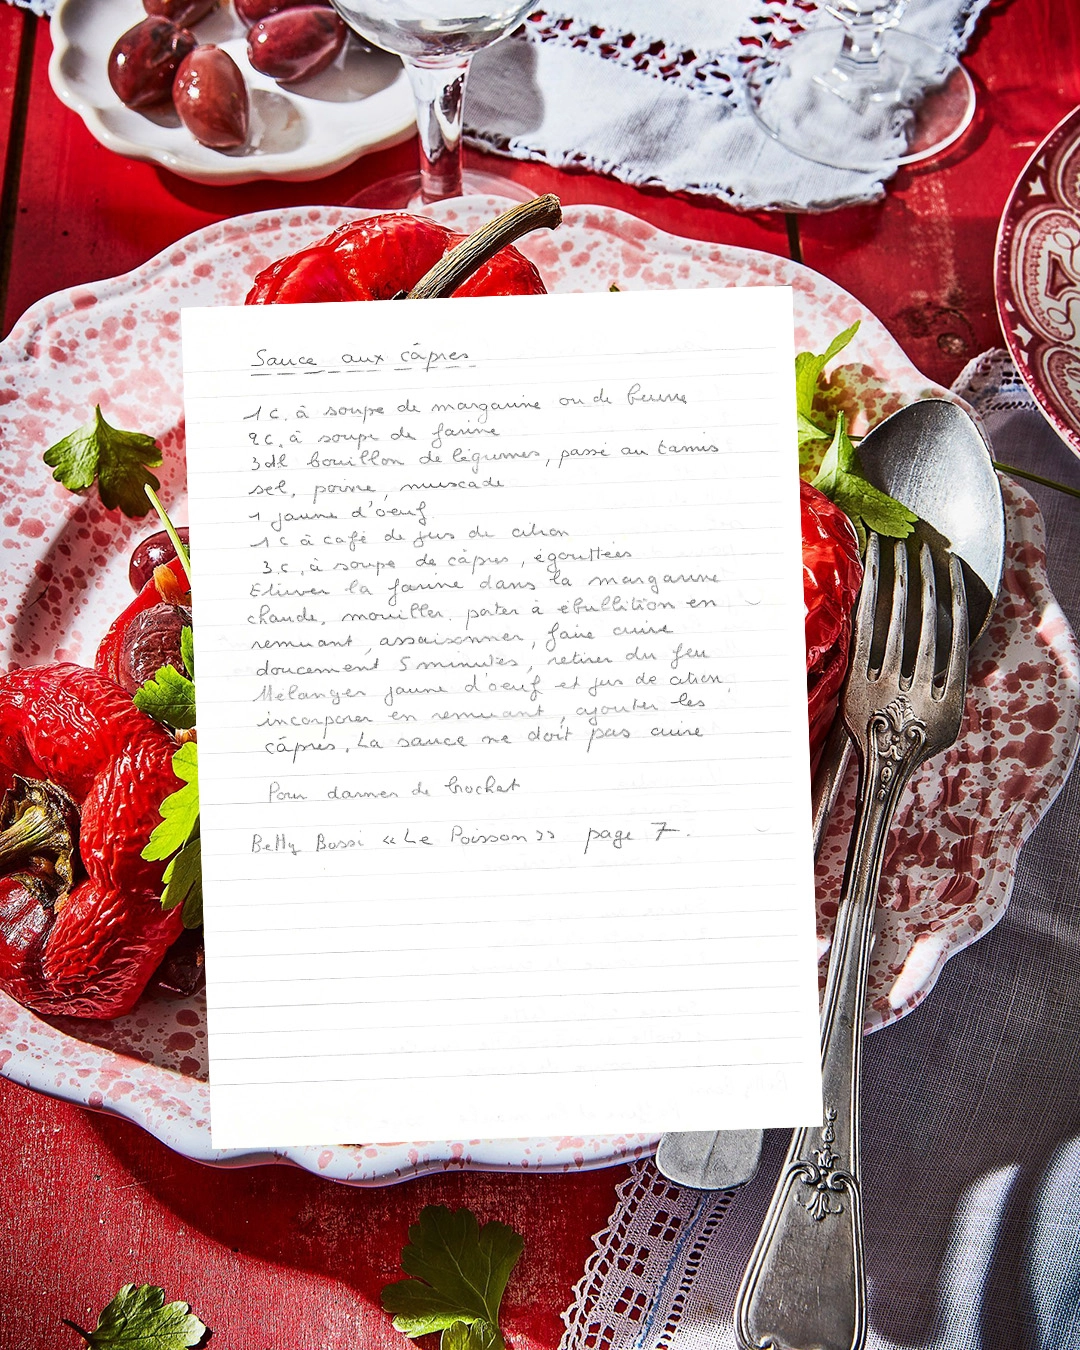 Sauce aux câpres
1 c. à soupe de margarine ou de beurre
2 c. à soupe de farine
3 dl bouillon de légumes, passé au tamis
sel, poivre, muscade
1 jaune d'oeuf
1 c à café de jus de citron
3 c. à soupe de câpres, égouttées
Etuver la farine dans la margarine
chaude, mouiller. porter à ébullition en
remuant, assaisonner, faire cuire
doucement 5 minutes, retirer du feu
Mélanger jaune d'oeuf et jus de citron,
incorporer en remuant, ajouter les
câpres. La sauce ne doit pas cuire
Pour darnes de brochet
Betty Bossi « Le Poisson » page 7.